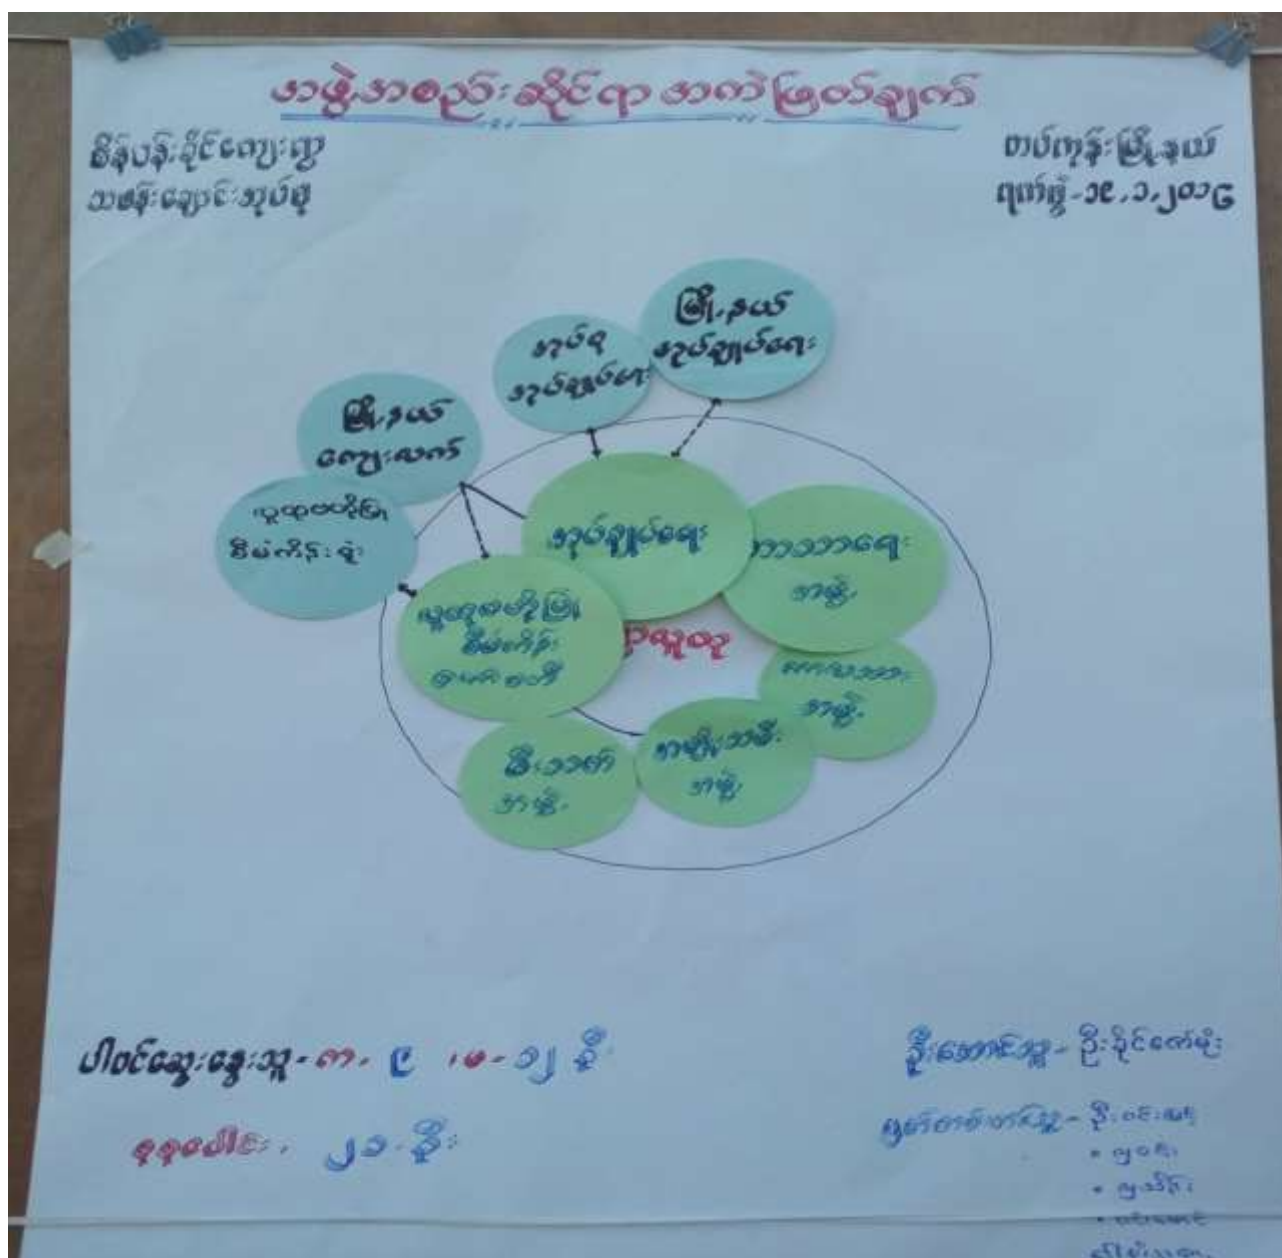 အဖွဲ့အစည်းဆိုင်ရာ အကဲဖြတ်ချက်
စိန်ပန်းခိုင်ကျေးရွာ
သစန်းချောင်းအုပ်စု
တပ်ကုန်းမြို့နယ်
ရက်စွဲ-၁၉.၁.၂၀၁၆
မြို့နယ်
အုပ်ချုပ်ရေး
အုပ်စု
အုပ်ချုပ်ရေး
မြို့နယ်
ကျေးလက်
လူထုဗဟိုပြု
စီမံကိန်းရုံး
အုပ်ချုပ်ရေး
ဘာသာရေး
အဖွဲ့
လူထုဗဟိုပြု
စီမံကိန်း
ကော်မတီ
ရွာလူထု
အဖွဲ့
အမျိုးသမီး
အဖွဲ့
မီးသတ်
အဖွဲ့
ပါဝင်ဆွေးနွေးသူ - ကျ - ၉ ၊ မ - ၁၂ ဦး
စုစုပေါင်း - ၂၁ - ဦး
ဦးဆောင်သူ - ဦးခိုင်ဇော်မိုး
မှတ်တမ်းတင်သူ - ဦးဝင်း